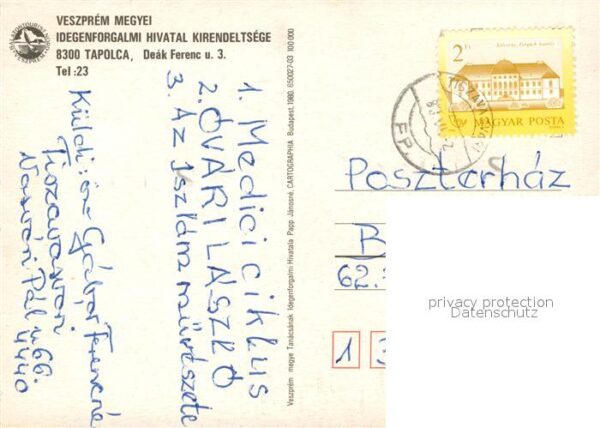 VESZPRÉM MEGYEI
IDEGENFORGALMI HIVATAL KIRENDELTSÉGE
8300 TAPOLCA, Deák Ferenc u. 3.
Tel :23
1. Medici ciklus
2. ÓVÁRI LÁSZLÓ
3. Az Iszlám művészete
Küldi: Gábor Ferencné
Tiszavasvári
Vasvári Pál u 66.
4440
Veszprém megye Tanácsának Idegenforgalmi Hivatala Papp Jánosné, CARTOGRAPHIA Budapest, 1980. 650027-03 100 000
2 Ft
MAGYAR POSTA
TISZAVASVÁRI
Poszterház
B
62.
1 3
privacy protection
Datenschutz